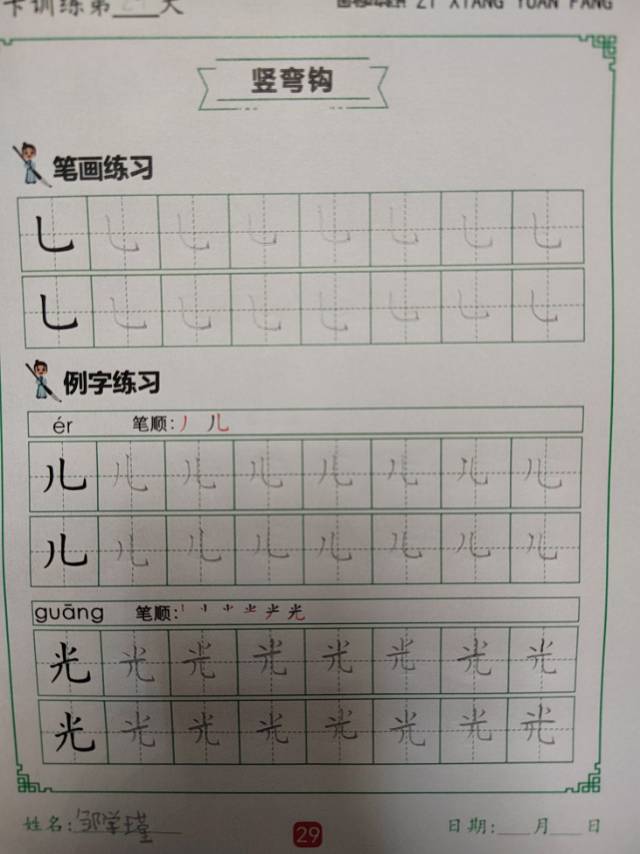 卡训练第 天
ZI XIANG YUAN FANG
竖弯钩
笔画练习
乚 乚 乚 乚 乚 乚 乚 乚
乚 乚 乚 乚 乚 乚 乚 乚
例字练习
ér 笔顺: 丿 儿
儿 儿 儿 儿 儿 儿 儿 儿
儿 儿 儿 儿 儿 儿 儿 儿
guāng 笔顺:
光 光 光 光 光 光 光 光
光 光 光 光 光 光 光 光
姓名: 邹学瑾
29
日期: 月 日